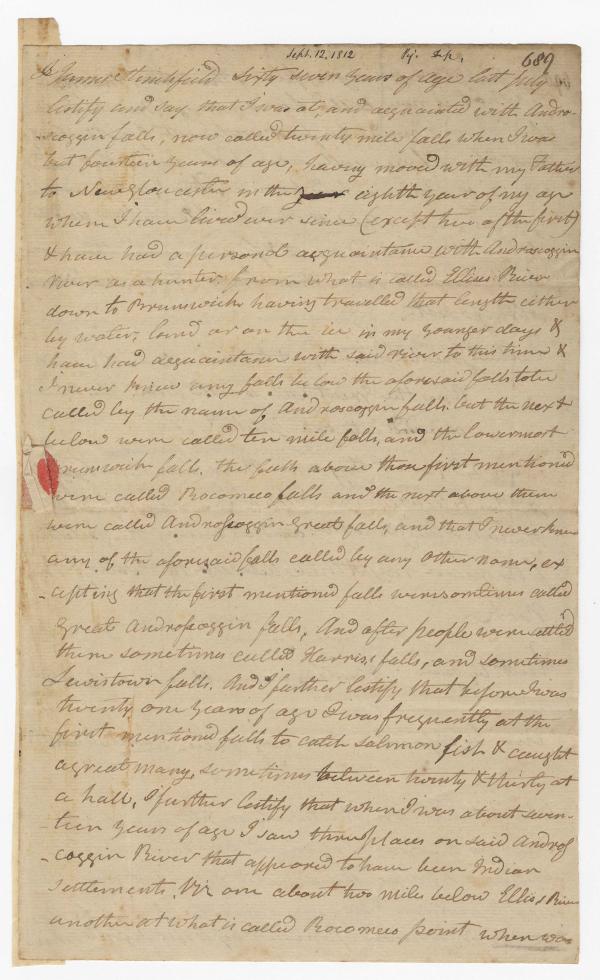 Sept. 12, 1812 Pej. Ip. 689
I James Stinchfield Sixty seven years of age last July
testify and say that I was at, and acquainted with Andro-
scoggin falls, now called twenty mile falls when I was
but fourteen years of age, having moved with my Father
to Newgloucester in the year eighth year of my age
where I have lived ever since (except two of the first)
& have had a personal acquaintance with Androscoggin
River as a hunter, from what is called Ellises River
down to Brunswick having travelled that length either
by water, land or on the ice in my younger days &
have had acquaintance with said river to this time &
I never knew any falls below the aforesaid falls to be
called by the name of Androscoggin falls. but the next
below were called ten mile falls, and the lowermost
Brunswick falls. the falls above those first mentioned
were called Rocomeco falls and the next above them
were called Androscoggin Great falls, and that I never knew
any of the aforesaid falls called by any other name, ex
-cepting that the first mentioned falls were sometimes called
Great Androscoggin falls, And after people were settled
there sometimes called Harris's falls, and sometimes
Lewistown falls. And I further testify that before I was
twenty one years of age I was frequently at the
first mentioned falls to catch salmon fish & caught
a great many, sometimes between twenty & thirty at
a hall, I further testify that when I was about seven-
teen years of age I saw three places on said Andros
-coggin River that appeared to have been Indian
Settlements. Viz one about two miles below Ellis's River
another at what is called Rocomeco point when was